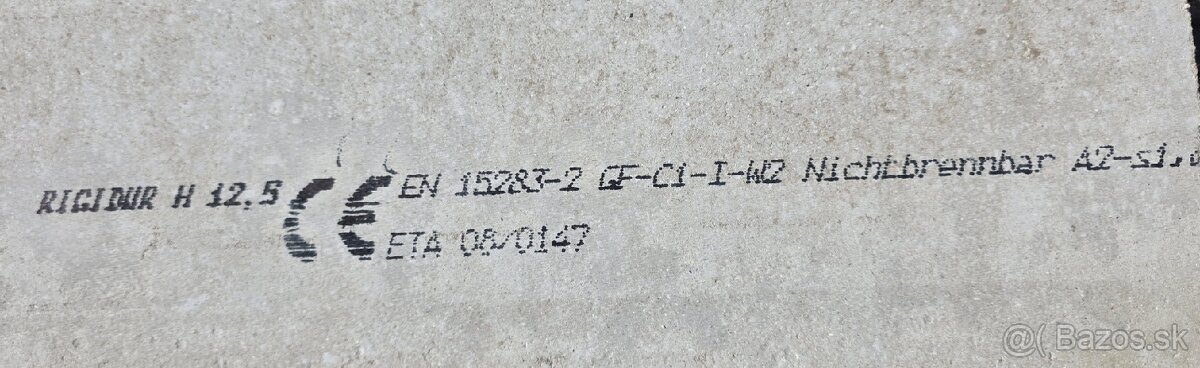 RIGIDUR H 12,5 CE EN 15283-2 GF-C1-I-W2 Nichtbrennbar A2-s1,
ETA 08/0147
@( Bazos.sk